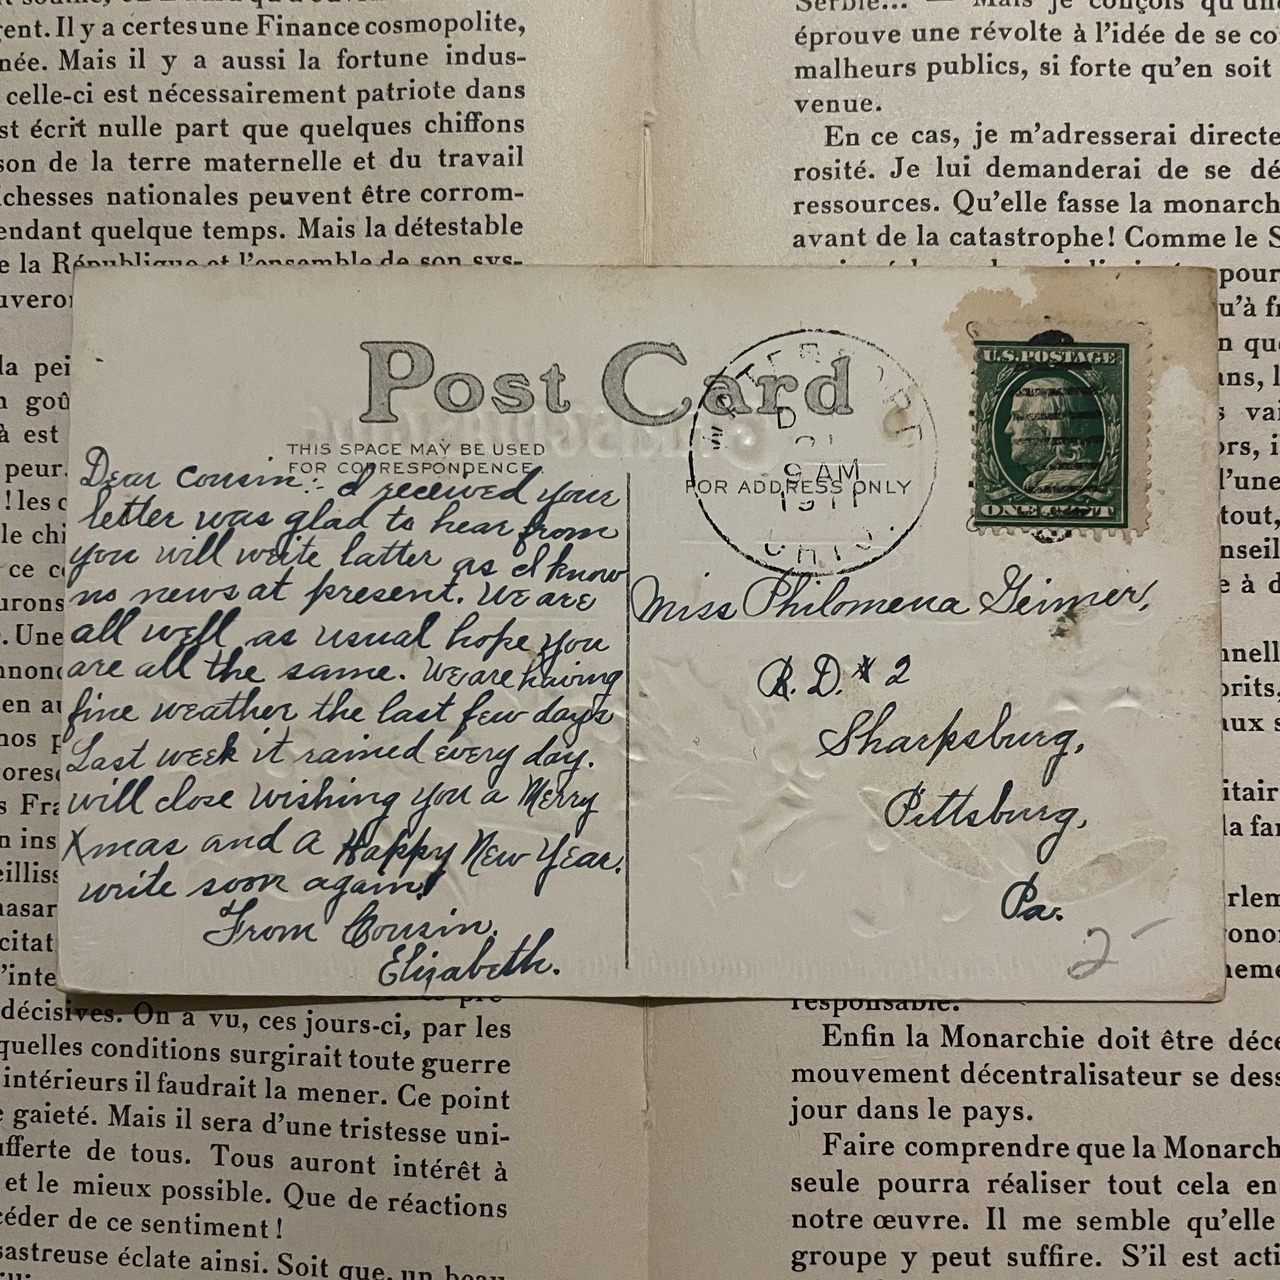 gent. Il y a certes une Finance cosmopolite,
née. Mais il y a aussi la fortune indus-
celle-ci est nécessairement patriote dans
st écrit nulle part que quelques chiffons
son de la terre maternelle et du travail
ichesses nationales peuvent être corrom-
endant quelque temps. Mais la détestable
e la République et l'ensemble de son sys-
uveron
la pei
n goû
à est
peur.
! les c
le chi
ce c
urons
. Une
nnonc
en au
nos p
oresc
s Fra
n ins
eillis
nasar
citat
l'inte
décisives. On a vu, ces jours-ci, par les
quelles conditions surgirait toute guerre
intérieurs il faudrait la mener. Ce point
e gaieté. Mais il sera d'une tristesse uni-
ufferte de tous. Tous auront intérêt à
et le mieux possible. Que de réactions
céder de ce sentiment !
sastreuse éclate ainsi. Soit que, un beau
Serbie... — Mais je conçois qu'une
éprouve une révolte à l'idée de se co
malheurs publics, si forte qu'en soit
venue.
En ce cas, je m'adresserai directe
rosité. Je lui demanderai de se dé
ressources. Qu'elle fasse la monarch
avant de la catastrophe! Comme le S
pour
qu'à fr
n que
ans, l
s vai
ors, i
d'une
tout,
nseil
e à d
nnell
prits,
aux s
itair
la fan
rlem
onon
neme
responsable.
Enfin la Monarchie doit être déce
mouvement décentralisateur se dess
jour dans le pays.
Faire comprendre que la Monarch
seule pourra réaliser tout cela en
notre œuvre. Il me semble qu'elle
groupe y peut suffire. S'il est acti
Post Card
THIS SPACE MAY BE USED
FOR CORRESPONDENCE.
Dear Cousin:- I received your
letter was glad to hear from
you will write latter as I know
no news at present. We are
all well as usual hope you
are all the same. We are having
fine weather the last few days
Last week it rained every day.
will close wishing you a Merry
Xmas and a Happy New Year.
write soon again!
From Cousin.
Elizabeth.
D
21
9 AM
1911
OHIO.
U.S. POSTAGE
ONE CENT
FOR ADDRESS ONLY
Miss Philomena Geimer,
R.D. # 2
Sharpsburg,
Pittsburg,
Pa.
2-